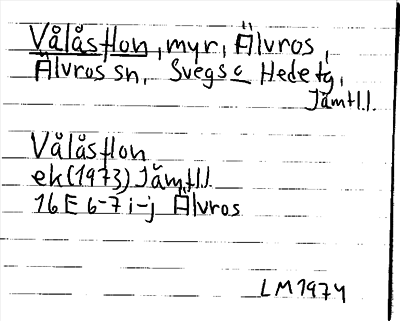 Vålåsflon, myr, Älvros,
Älvros sn, Svegs o Hede tg,
Jämtl.l.
Vålåsflon
ek (1973) Jämtl.l.
16 E 6-7 i-j Älvros
LM 1974